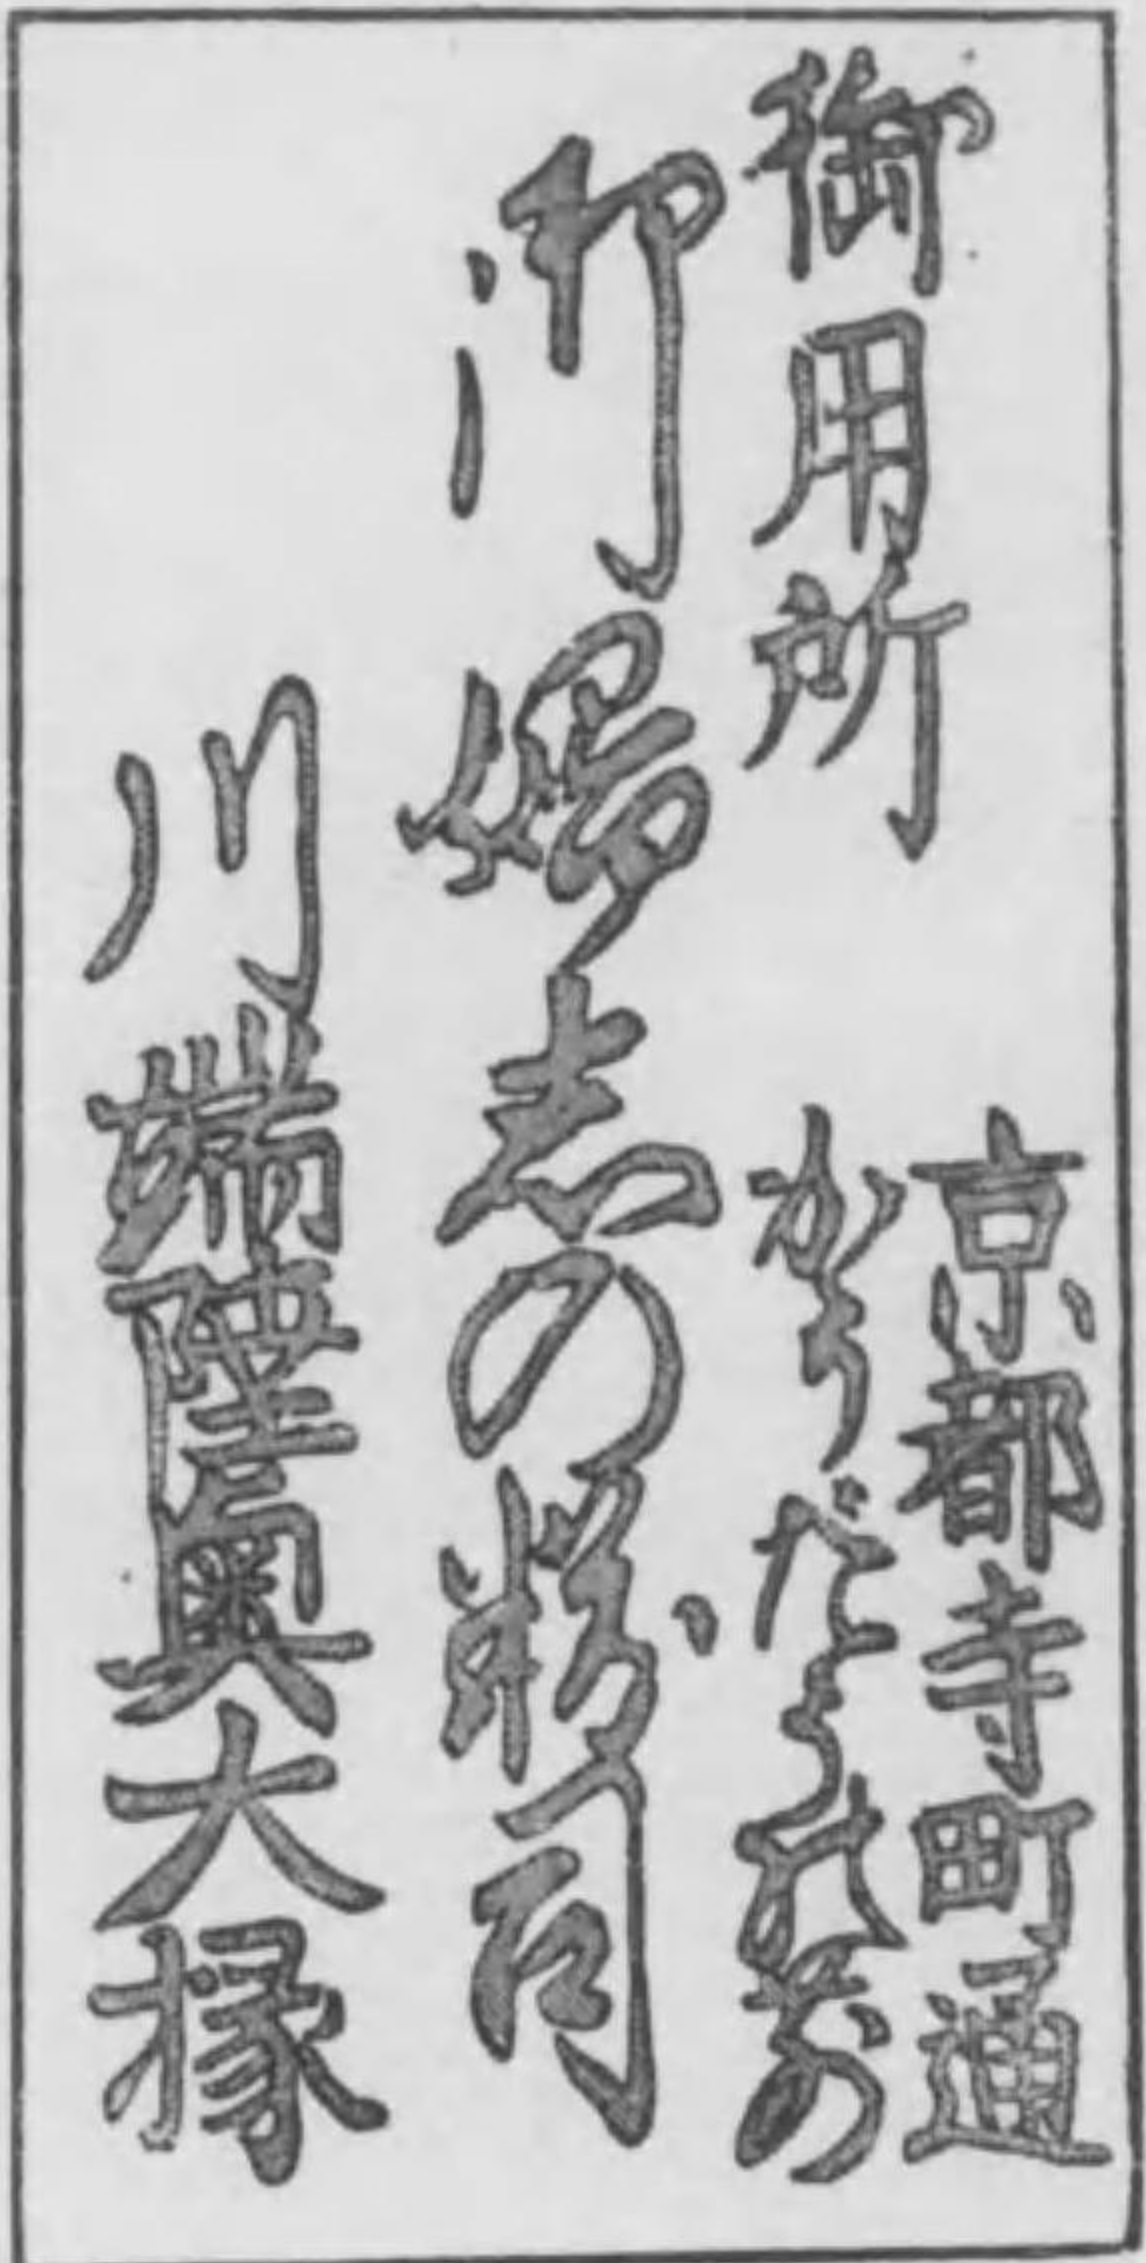 御用所
京都寺町通
かうだうの前
御婦志の粉司
川端陸奥大掾